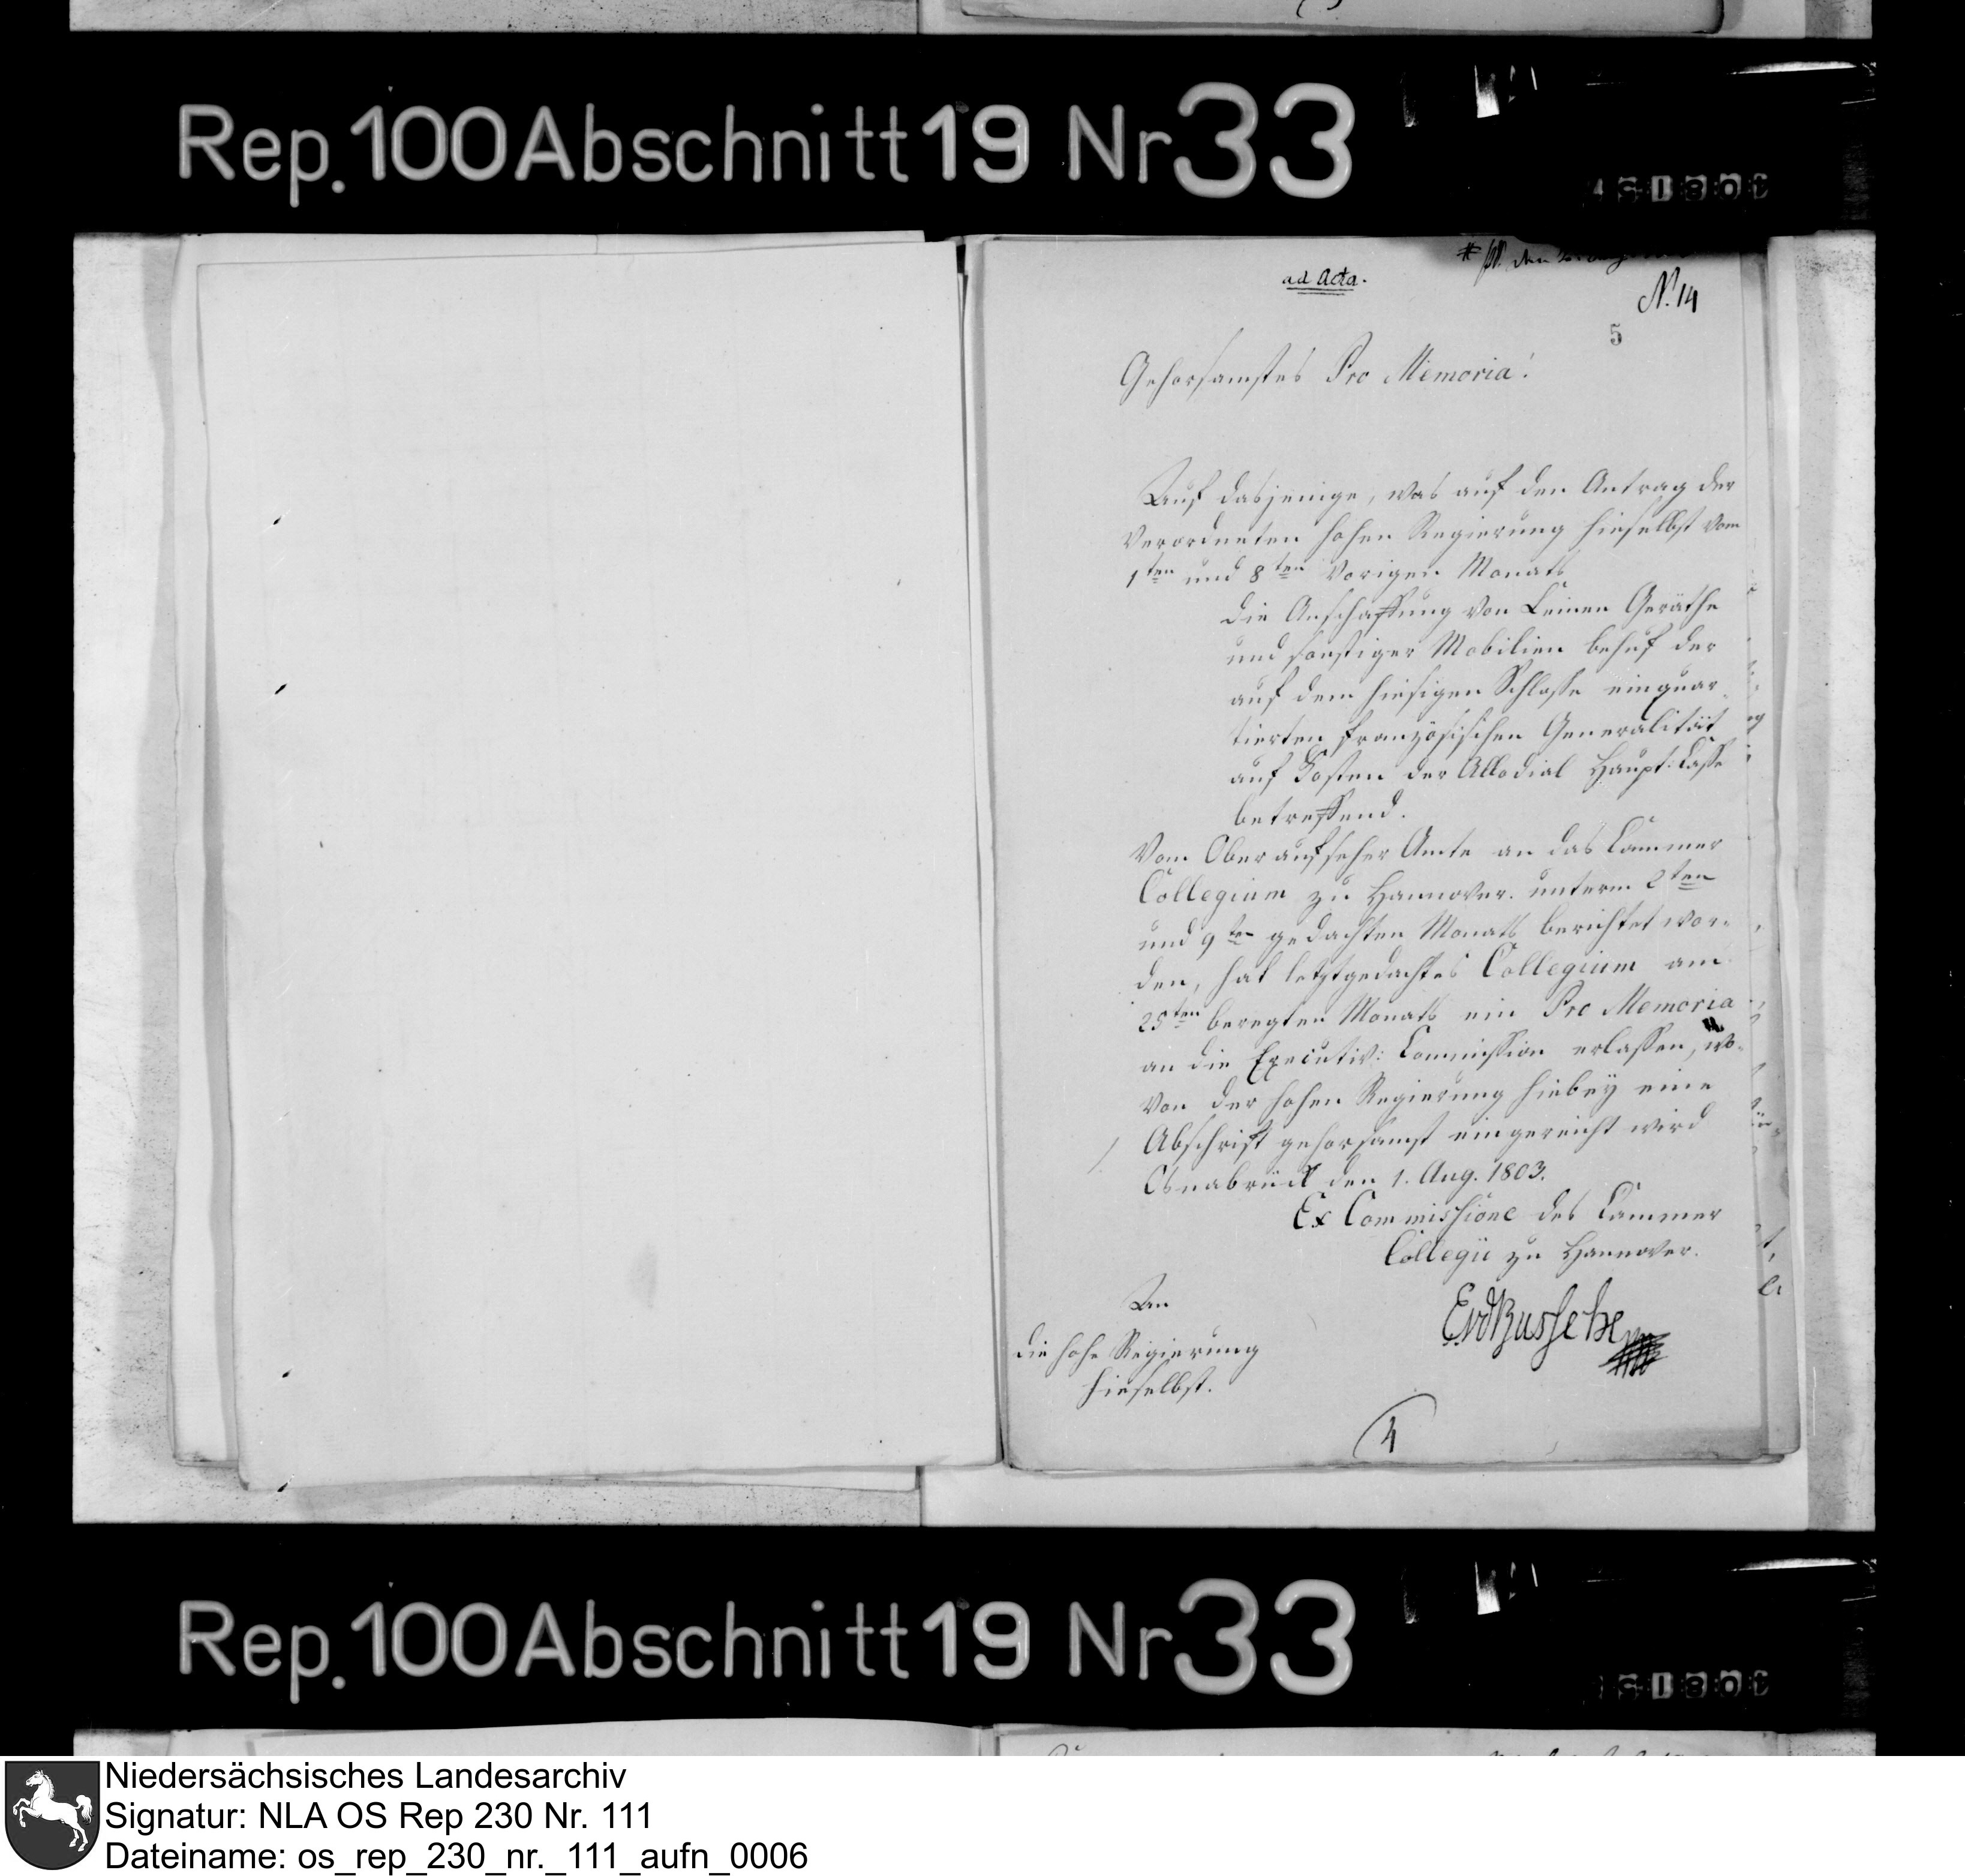 Rep. 100 Abschnitt 19 Nr 33
ad Acta.
den
N. 14
5
Gehorsamstes Pro Memoria!
Auf dasjenige, was auf den Antrag der
verordneten hohen Regierung hieselbst vom
1ten und 8ten vorigen Monats
die Anschaffung von Leinen Geräthe
und sonstiger Mobilien behuf der
auf dem hiesigen Schlosse einquar-
tierten französischen Generalität
auf Kosten der Allodial Haupt: Casse
betreffend.
Vom Oberaufseher Amte an das Cammer
Collegium zu Hannover unterm 2ten
und 9ten gedachten Monats berichtet wor-
den, hat letztgedachtes Collegium am
25ten beregten Monats ein Pro Memoria
an die Executiv: Commission erlassen, wo-
von der hohen Regierung hiebey eine
Abschrift gehorsamst eingereicht wird
Osnabrück den 1. Aug. 1803.
Ex Commissione des Cammer
Collegii zu Hannover.
EvdBussche
An
die hohe Regierung
hieselbst.
4
Rep. 100 Abschnitt 19 Nr 33
Niedersächsisches Landesarchiv
Signatur: NLA OS Rep 230 Nr. 111
Dateiname: os_rep_230_nr._111_aufn_0006